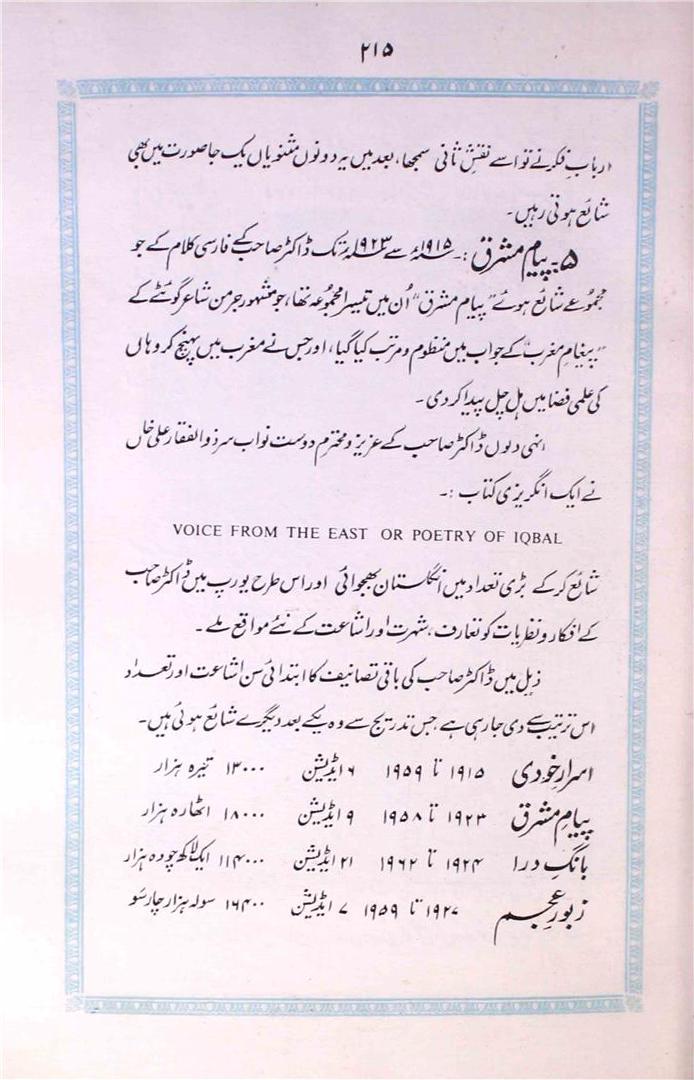 ۲۱۵
اربابِ فکر نے تو اسے نقشِ ثانی سمجھا، بعد میں یہ دونوں مثنویاں یک جا صورت میں بھی
شائع ہوتی رہیں۔
۵۔ پیامِ مشرق :۔ ۱۹۱۵ء سے ۱۹۲۳ء تک ڈاکٹر صاحب کے فارسی کلام کے جو
مجموعے شائع ہوئے "پیام مشرق" اُن میں تیسرا مجموعہ تھا، جو مشہور جرمن شاعر گوئٹے کے
"پیغامِ مغرب" کے جواب میں منظوم و مرتب کیا گیا، اور جس نے مغرب میں پہنچ کر وہاں
کی علمی فضا میں ہل چل پیدا کر دی۔
انہی دنوں ڈاکٹر صاحب کے عزیز و محترم دوست نواب سر ذوالفقار علی خاں
نے ایک انگریزی کتاب :۔
VOICE FROM THE EAST OR POETRY OF IQBAL
شائع کر کے بڑی تعداد میں انگلستان بھجوائی اور اس طرح یورپ میں ڈاکٹر صاحب
کے افکار و نظریات کو تعارف، شہرت اور اشاعت کے نئے مواقع ملے۔
ذیل میں ڈاکٹر صاحب کی باقی تصانیف کا ابتدائی سن اشاعت اور تعداد
اس ترتیب سے دی جا رہی ہے، جس تدریج سے وہ یکے بعد دیگرے شائع ہوئی ہیں۔
اسرارِ خودی ۱۹۱۵ تا ۱۹۵۹ ۶ ایڈیشن ۱۳۰۰۰ تیرہ ہزار
پیامِ مشرق ۱۹۲۳ تا ۱۹۵۸ ۹ ایڈیشن ۱۸۰۰۰ اٹھارہ ہزار
بانگِ درا ۱۹۲۴ تا ۱۹۶۲ ۲۱ ایڈیشن ۱۱۴۰۰۰ ایک لاکھ چودہ ہزار
زبورِ عجم ۱۹۲۷ تا ۱۹۵۹ ۷ ایڈیشن ۱۶۴۰۰ سولہ ہزار چار سَو